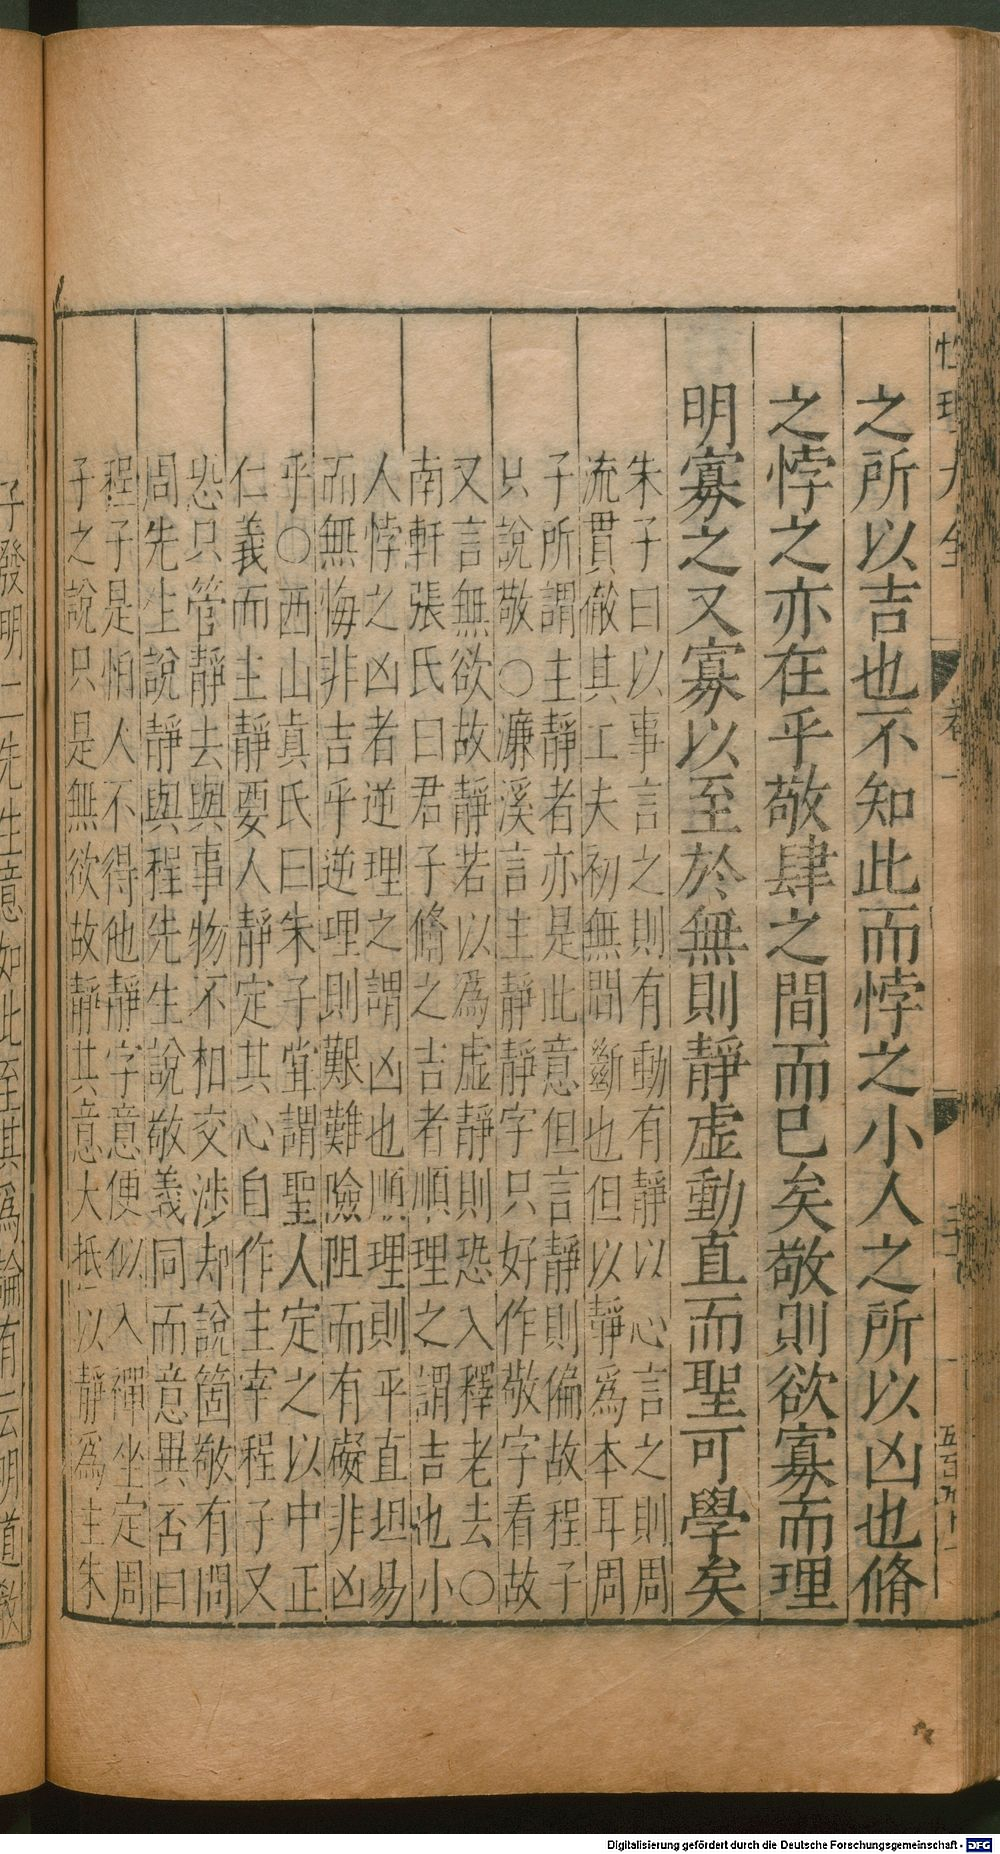 之所以吉也不知此而悖之小人之所以凶也脩
之悖之亦在乎敬肆之間而已矣敬則欲寡而理
明寡之又寡以至於無則靜虛動直而聖可學矣
朱子曰以事言之則有動有靜以心言之則周
流貫徹其工夫初無間斷也但以靜爲本耳周
子所謂主靜者亦是此意但言靜則偏故程子
只說敬○濂溪言主靜靜字只好作敬字看故
又言無欲故靜若以爲虛靜則恐入釋老去○
南軒張氏曰君子脩之吉者順理之謂吉也小
人悖之凶者逆理之謂凶也順理則平直坦易
而無悔非吉乎逆理則艱難險阻而有礙非凶
乎○西山眞氏曰朱子甞謂聖人定之以中正
仁義而主靜要人靜定其心自作主宰程子又
恐只管靜去與事物不相交涉却說箇敬有問
周先生說靜與程先生說敬義同而意異否曰
程子是怕人不得他靜字意便似入禪坐定周
子之說只是無欲故靜其意大抵以靜爲主朱
子發明二先生意如此至其爲論有云明道敎
Digitalisierung gefördert durch die Deutsche Forschungsgemeinschaft - DFG